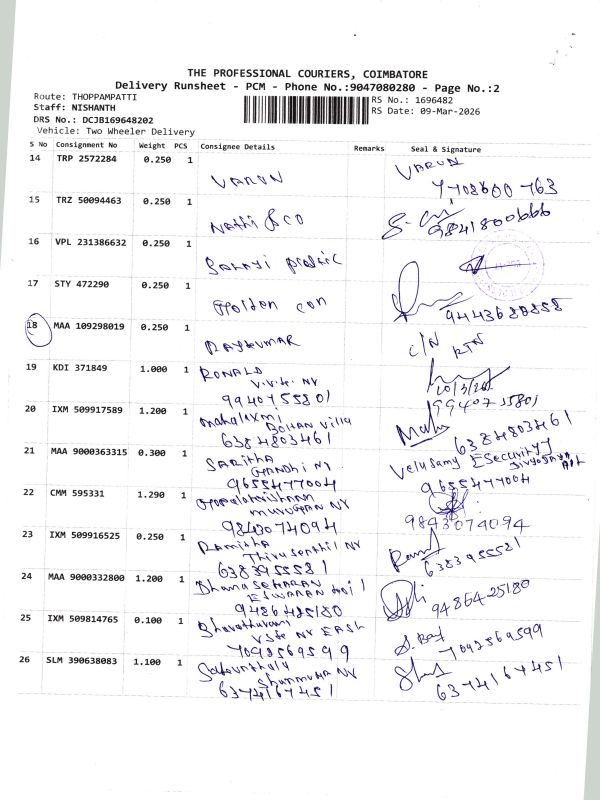 THE PROFESSIONAL COURIERS, COIMBATORE
Delivery Runsheet - PCM - Phone No.:9047080280 - Page No.:2
Route: THOPPAMPATTI
RS No.: 1696482
Staff: NISHANTH
RS Date: 09-Mar-2026
DRS No.: DCJB169648202
Vehicle: Two Wheeler Delivery
S No Consignment No Weight PCS Consignee Details Remarks Seal & Signature
14 TRP 2572284 0.250 1
VARUN
VARUN
7708600763
15 TRZ 50094463 0.250 1
Nathi & CO
9841800666
16 VPL 231386632 0.250 1
17 STY 472290 0.250 1
Golden con
9443688858
18 MAA 109298019 0.250 1
RAJKUMAR
C/N RTN
19 KDI 371849 1.000 1
RONALD
9940755801
10/3/26
9940755801
20 IXM 509917589 1.200 1
Mahalaxmi
Villa
6384803461
6384803461
21 MAA 9000363315 0.300 1
SARITHA
GANDHI NR
9655477004
Velusamy Security
9655477004
22 CMM 595331 1.290 1
Gopalakrishnan
MURUGAN NR
9843074094
9843074094
23 IXM 509916525 0.250 1
Thirusenthil NR
6383955521
6383955521
24 MAA 9000332800 1.200 1
DhanaSEKARAN
9486425180
9486425180
25 IXM 509814765 0.100 1
NR EAST
7092569599
7092569599
26 SLM 390638083 1.100 1
Shunmuha NR
6374167451
6374167451